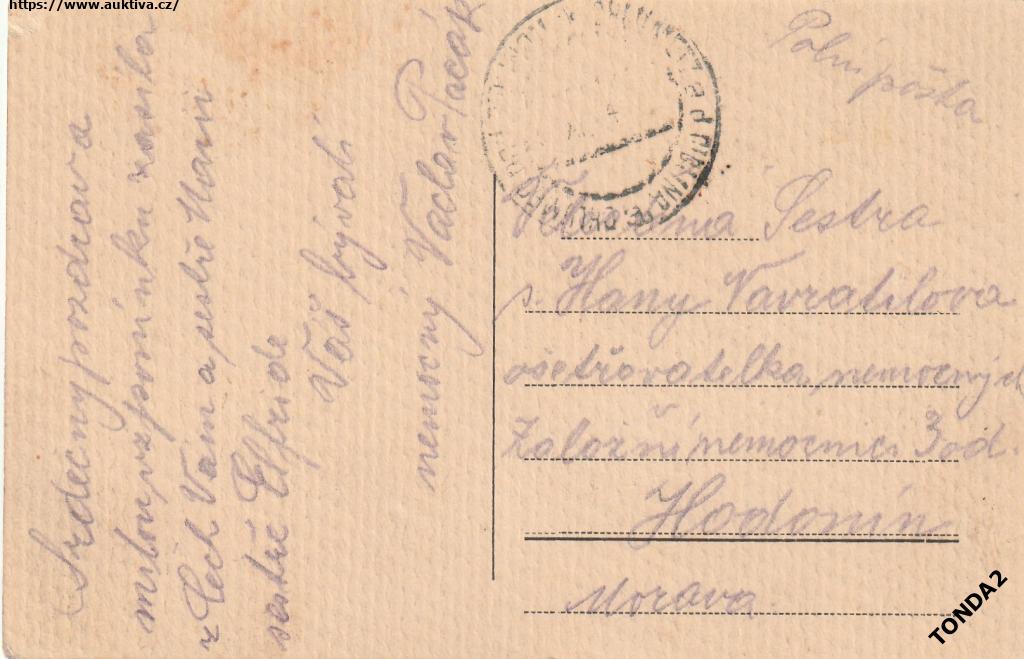 https://www.auktiva.cz/
Srdečný pozdrav a
milou vzpomínku zasíla
z Čech Vám a sestře Mani
sestře Elfride
Váš bývalí
nemocný Václav Pacák
Polní pošta
Sestra
s. Hany Navratilova
ošetřovatelka nemocných
Záložní nemocnici 3 od.
Hodonín
Morava
TONDA2